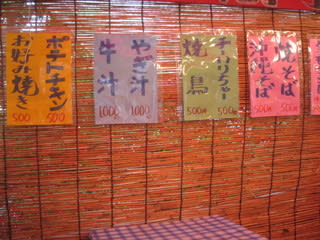 ポテトチキン
500
お好み焼き
500
やぎ汁
1000
牛汁
1000
チーイリチャー
500
焼鳥
500
焼そば
500
沖縄そば
500